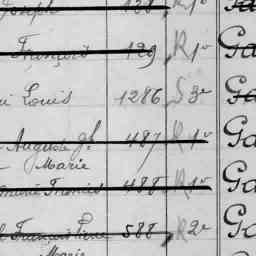 Joseph 438, R 1e Ga
François 129, R 1e Ga
Louis 1286, S 3e Ga
Auguste Jh 487, R 1e Ga
Marie
Thomas 488, R 1e Ga
François Pierre 588, R 2e Ga
Marie